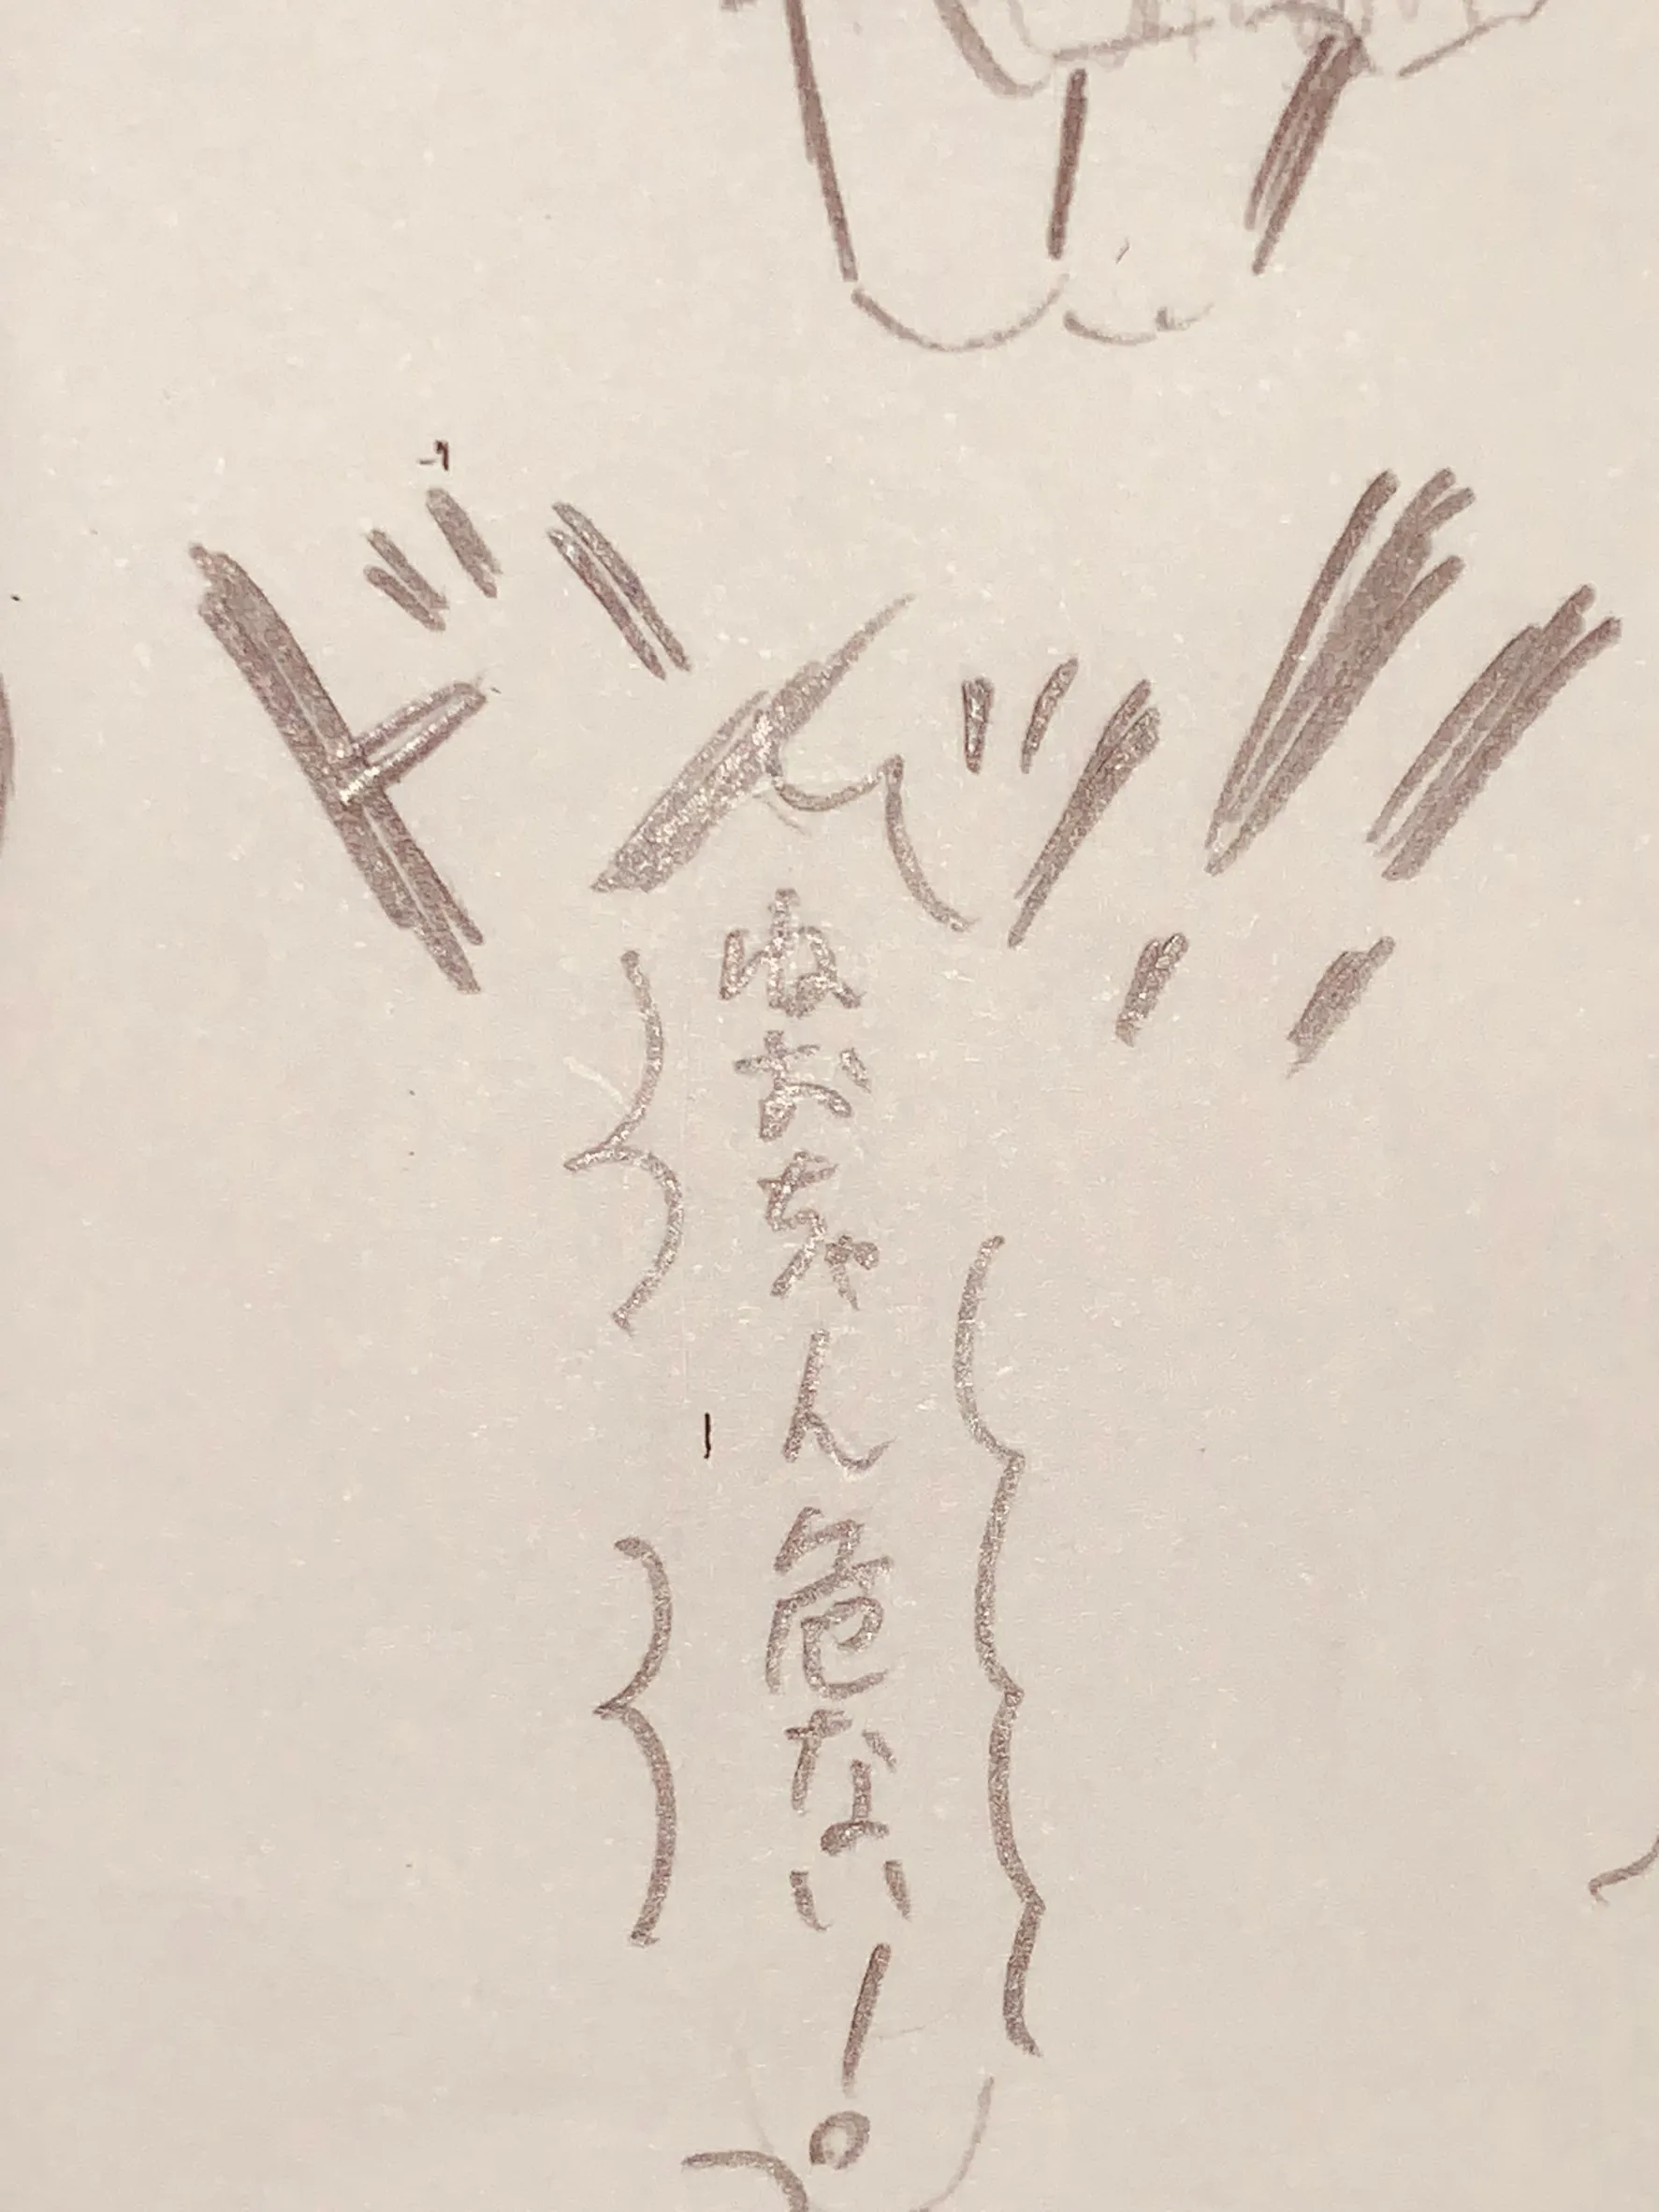 ドンッ!!
ねおちゃん危ない!